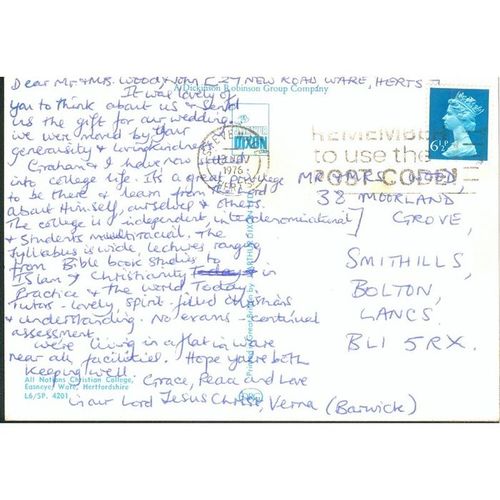 A Dickinson Robinson Group Company
Dear Mr & Mrs. Wood, 27 NEW ROAD WARE, HERTS
It was lovely of
you to think about us & send
us the gift for our wedding.
we were moved by your
generousity & kindness.
Graham & I have now
into college life. It's a great privilege
to be there & learn from the Lord
about Himself, ourselves & others.
The college is independent, interdenominational
& students multiracial. The
syllabus is wide, lectures ranging
from Bible book studies to
Islam & Christianity in
Practice & the world Today
Tutors - lovely spirit-filled Christians
& understanding. No exams - continual
assessment.
We're living in a flat in Ware
near all facilities. Hope you're both
keeping well.
Grace, Peace and Love
in our Lord Jesus Christ, Verna (Barwick)
All Nations Christian College,
Easneye, Ware, Hertfordshire
L6/SP. 4201
DIXON
STEVENAGE
NOV
1976
HERTS
REMEMBER
to use the
POST CODE
6½P
MR & MRS WOOD
38 MOORLAND
GROVE,
SMITHILLS,
BOLTON,
LANCS.
BL1 5RX.